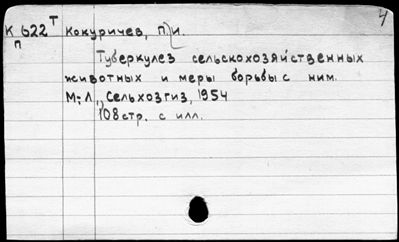 4
К 622 Т Кокуричев, П. И.
п
Туберкулез сельскохозяйственных
животных и меры борьбы с ним.
М.-Л., Сельхозгиз, 1954
108 стр. с илл.